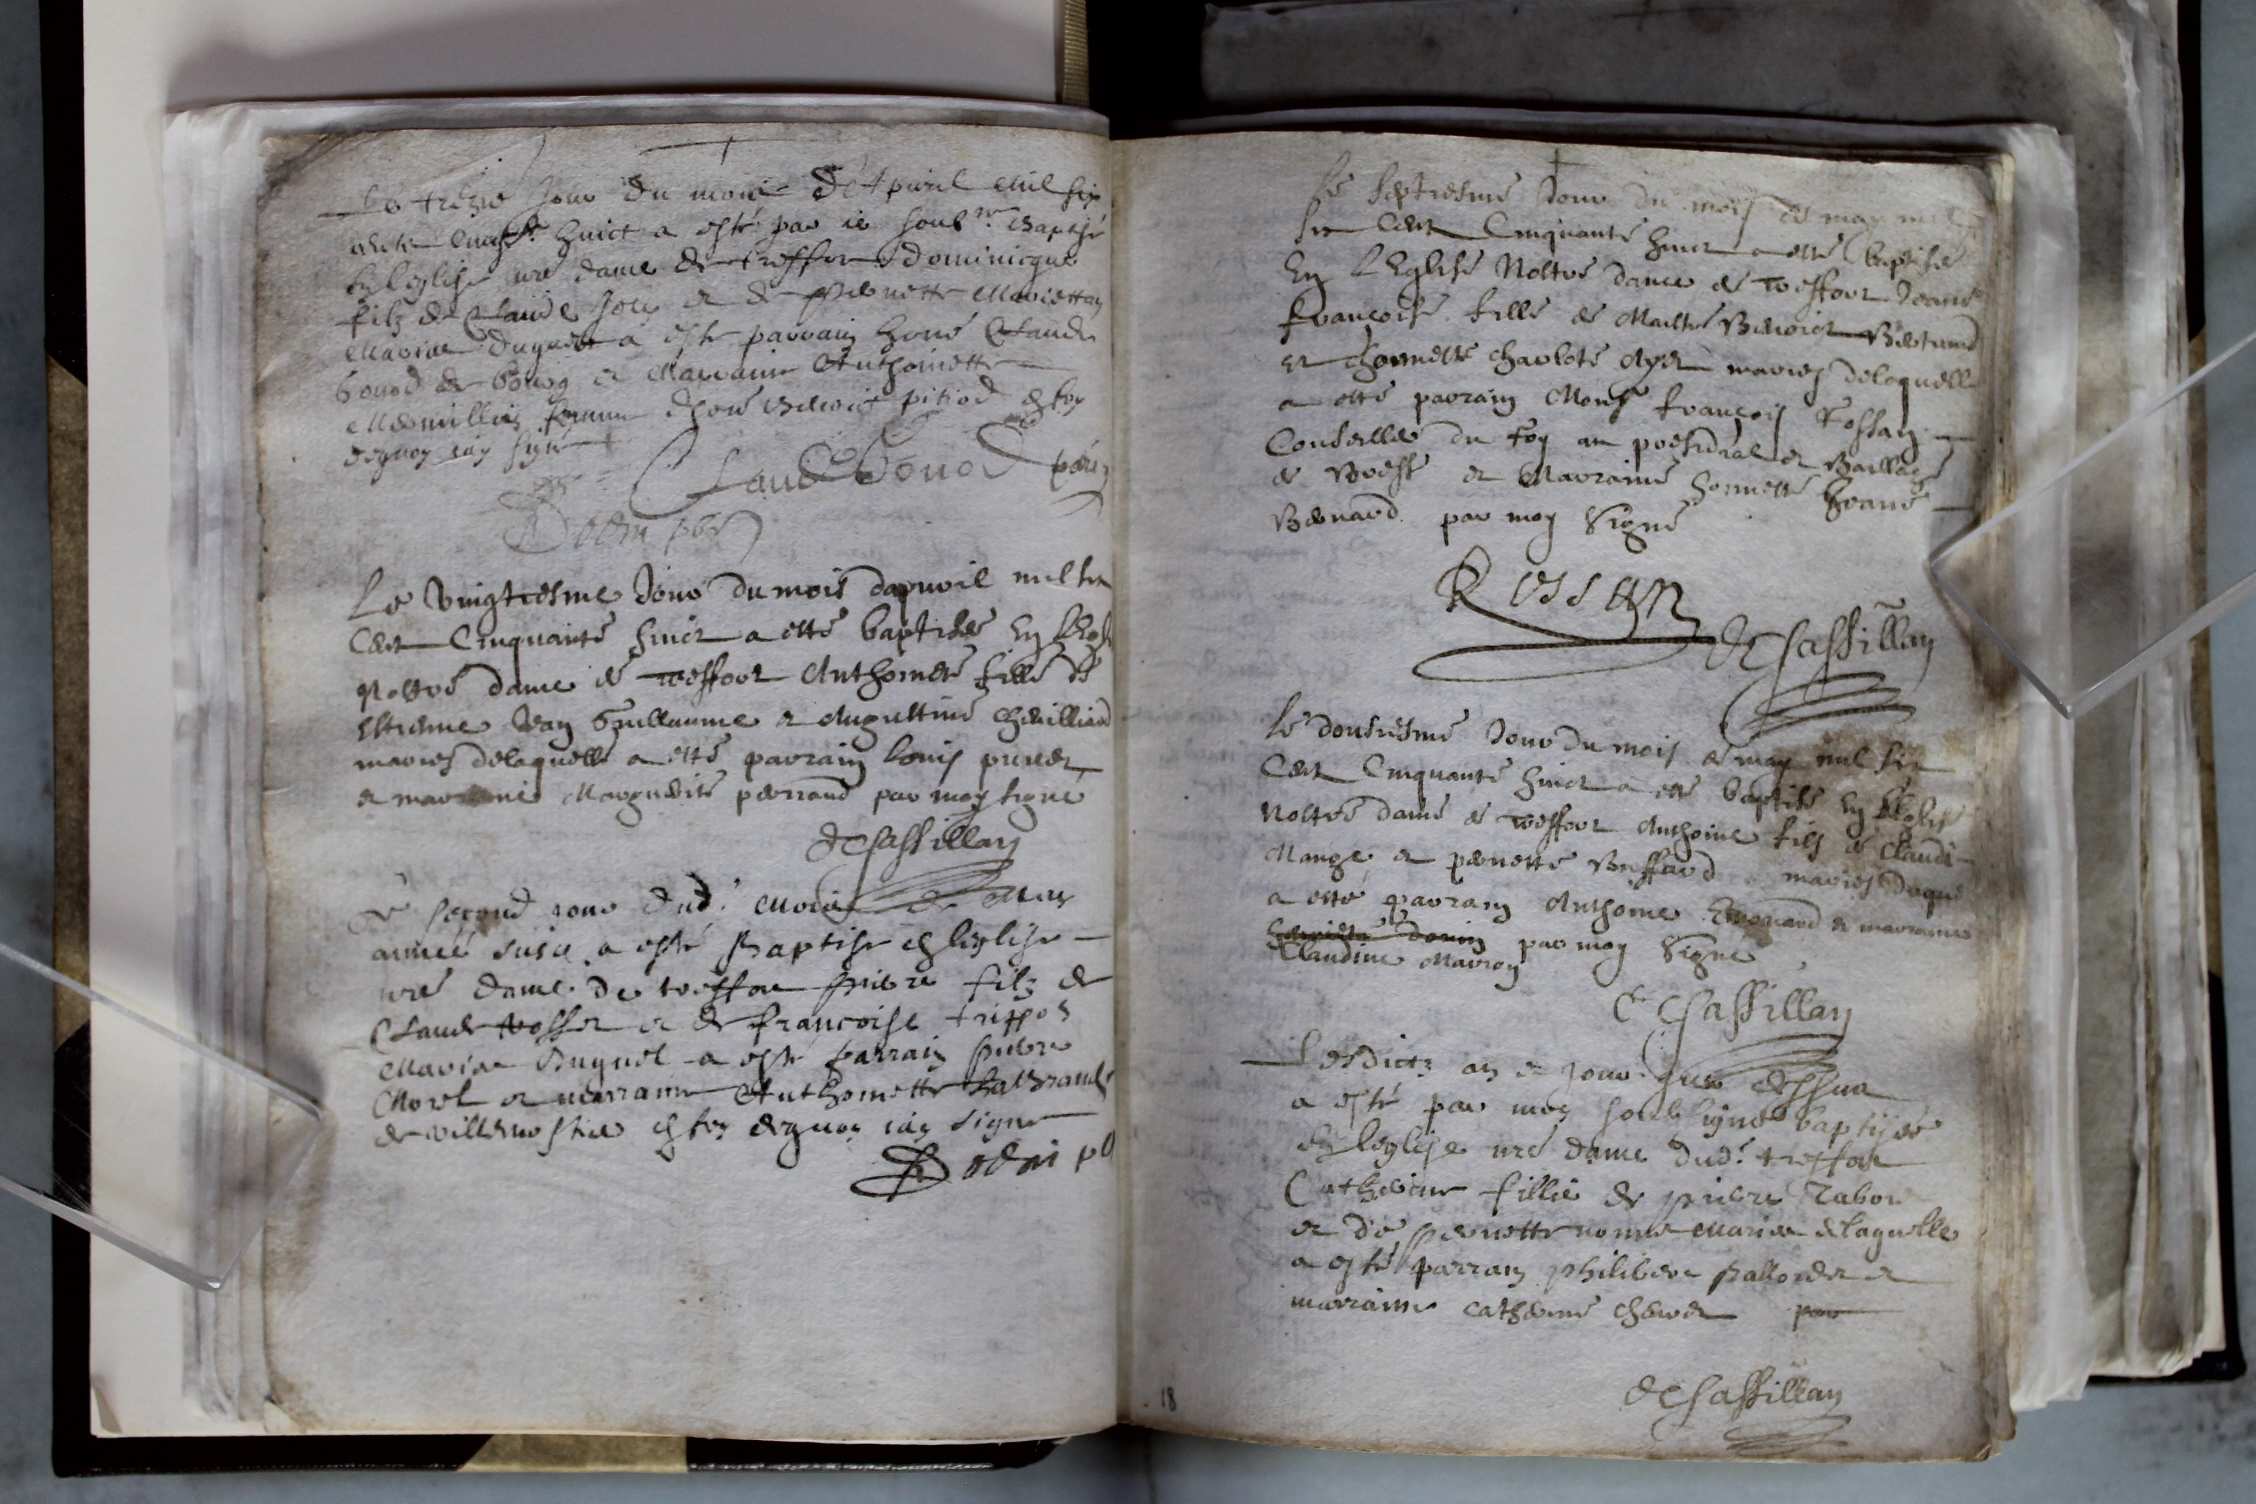 Le trezie Jour du mois d'Apvril mil six
cents cinqte huict a esté par ie soubne Baptisé
en leglise nre dame de treffort Dominicque
filz de Claude Joly et de Pernette
Mariee duquel a esté parrain honé Claude
bonod de bourg et Marraine Anthoinette
femme dhoné Benoit pitiod en foy
dequoy iay signé
Claude bonod parin
le vingtiesme Jour du mois dapvril mil six
Cent Cinquante huict a esté baptisée en l'Eglise
Nostre dame de treffort Anthoinete fille de
Estienne Jean Guillaume et Augustine Chevilliard
maries delaquelle a esté parrain louis
et marraine Marguerite perraud par moy signé
deCassillan
Le second jour dud. mois de May
annee susd. a esté Baptise en leglise
nre dame de treffort Pierre filz de
Claude et de françoise
Mariee Duquel a esté parrain Pierre
Morel et marraine Anthoinette
de villemostier en foy dequoy iay signé
Le septiesme Jour du mois de may mil
six Cent Cinquante huict a esté baptisée
En L'Eglise Nostre dame de treffort Jeane
françoise fille de Maistre Benoict
et honneste Charlote maries delaquelle
a esté parrain Monsr françois Rossan
Conseiller du roy au presidial et Baillage
de Bresse et Marraine honneste Jeane
Bernard par moy Signé
Rossan
deCassillan
Le dousiesme Jour du mois de may mil six
Cent Cinquante huict a esté baptisé en L'Eglise
Nostre dame de treffort Anthoine fils de Claude
Mange et pernette Buffard maries duquel
a esté parrain Anthoine et marraine
par moy Signé
Claudine Mairon
deCassillan
Lesdictz an et jour que dessus
a esté par moy soubsigné baptisée
En leglise nre dame dud. treffort
Catherine fillie de pierre Rabou
et de Pernette mariee delaquelle
a esté parrain philibert et
marraine Catherine par
deCassillan
18